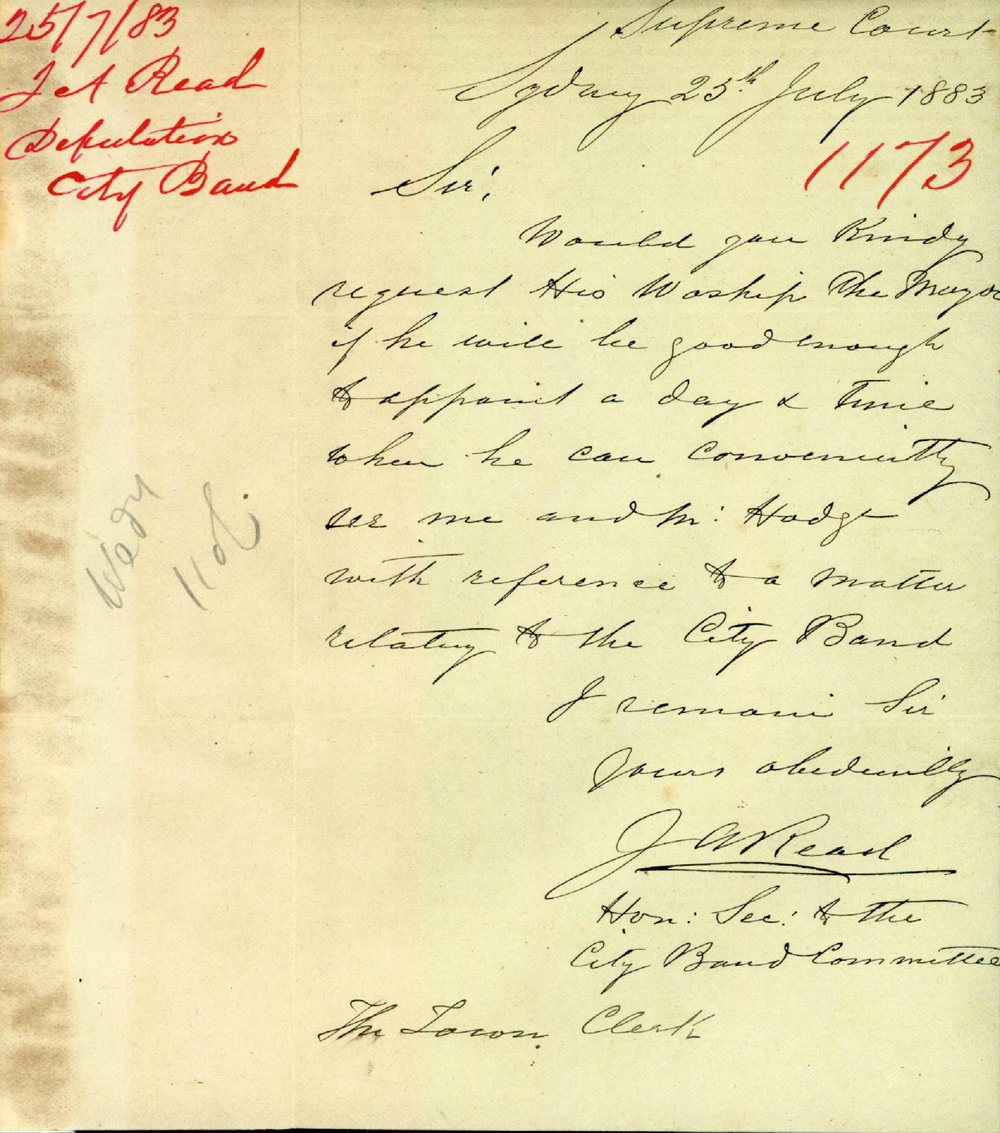 25/7/83
J A Read
Deputation
City Band
Supreme Court
Sydney 25th July 1883
1173
Sir,
Would you Kindy
request His Woship The Mayor
if he will be good enough
to appoint a day & time
when he can conveniently
see me and Mr: Hodge
with reference to a matter
relating to the City Band
I remain Sir
Yours obediently
J A Read
Hon: Sec: to the
City Band Committee
The Town Clerk
Wedy
11 o/c